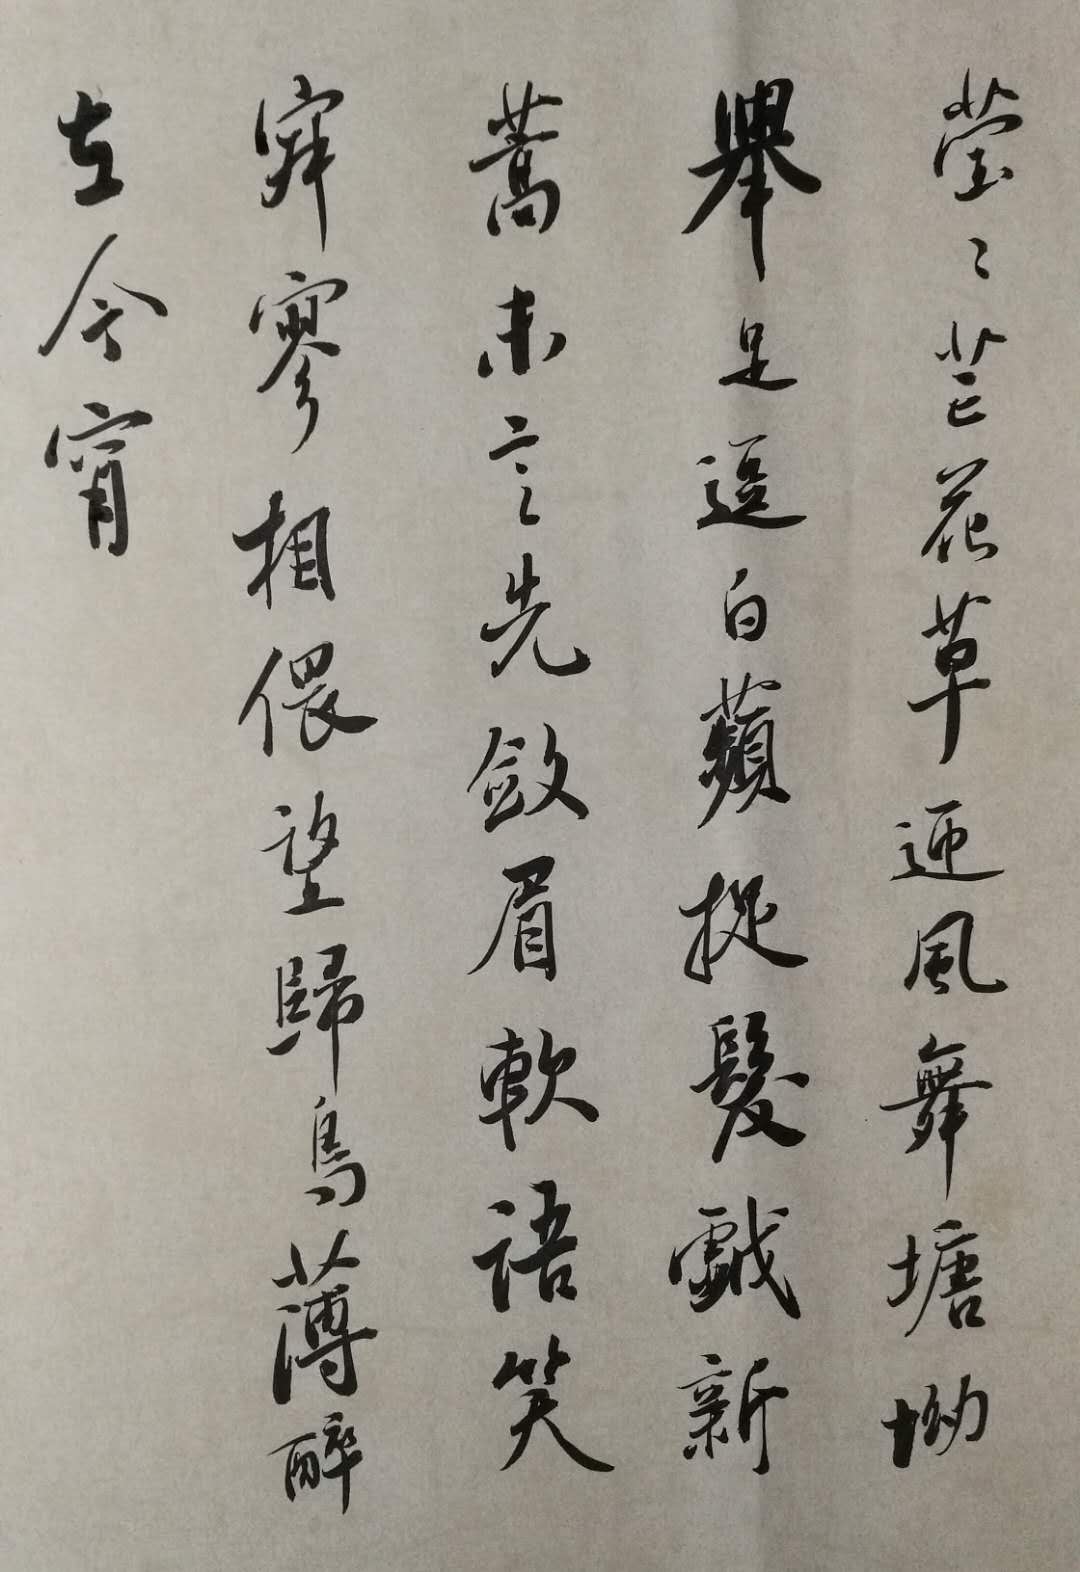 莹〻芒花草迎風舞塘坳
舉足逗白蘋捉髮戲新
蒿未言先斂眉軟語笑
寂寥相偎望歸鳥薄醉
在今宵